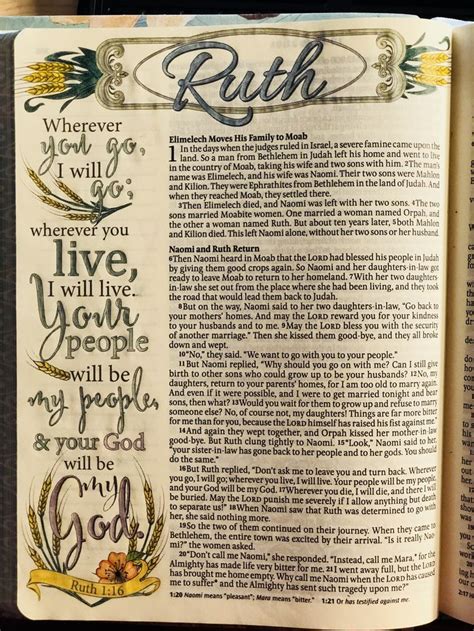 Ruth
Wherever
you go,
I will
go;
wherever you
live,
I will live.
Your
people
will be
my people,
& your God
will be
my
God.
Ruth 1:16
Elimelech Moves His Family to Moab
1 In the days when the judges ruled in Israel, a severe famine came upon the
land. So a man from Bethlehem in Judah left his home and went to live
in the country of Moab, taking his wife and two sons with him. 2The man's
name was Elimelech, and his wife was Naomi. Their two sons were Mahlon
and Kilion. They were Ephrathites from Bethlehem in the land of Judah. And
when they reached Moab, they settled there.
3Then Elimelech died, and Naomi was left with her two sons. 4The two
sons married Moabite women. One married a woman named Orpah, and
the other a woman named Ruth. But about ten years later, 5both Mahlon
and Kilion died. This left Naomi alone, without her two sons or her husband.
Naomi and Ruth Return
6Then Naomi heard in Moab that the LORD had blessed his people in Judah
by giving them good crops again. So Naomi and her daughters-in-law got
ready to leave Moab to return to her homeland. 7With her two daughters-
in-law she set out from the place where she had been living, and they took
the road that would lead them back to Judah.
8But on the way, Naomi said to her two daughters-in-law, "Go back to
your mothers' homes. And may the LORD reward you for your kindness
to your husbands and to me. 9May the LORD bless you with the security
of another marriage." Then she kissed them good-bye, and they all broke
down and wept.
10"No," they said. "We want to go with you to your people."
11But Naomi replied, "Why should you go on with me? Can I still give
birth to other sons who could grow up to be your husbands? 12No, my
daughters, return to your parents' homes, for I am too old to marry again.
And even if it were possible, and I were to get married tonight and bear
sons, then what? 13Would you wait for them to grow up and refuse to marry
someone else? No, of course not, my daughters! Things are far more bitter
for me than for you, because the LORD himself has raised his fist against me."
14And again they wept together, and Orpah kissed her mother-in-law
good-bye. But Ruth clung tightly to Naomi. 15"Look," Naomi said to her,
"your sister-in-law has gone back to her people and to her gods. You should
do the same."
16But Ruth replied, "Don't ask me to leave you and turn back. Wherever
you go, I will go; wherever you live, I will live. Your people will be my people,
and your God will be my God. 17Wherever you die, I will die, and there I will
be buried. May the LORD punish me severely if I allow anything but death
to separate us!" 18When Naomi saw that Ruth was determined to go with
her, she said nothing more.
19So the two of them continued on their journey. When they came to
Bethlehem, the entire town was excited by their arrival. "Is it really Nao-
mi?" the women asked.
20"Don't call me Naomi," she responded. "Instead, call me Mara," for the
Almighty has made life very bitter for me. 21I went away full, but the LORD
has brought me home empty. Why call me Naomi when the LORD has caused
me to suffer and the Almighty has sent such tragedy upon me?"
1:20 Naomi means "pleasant"; Mara means "bitter." 1:21 Or has testified against me.